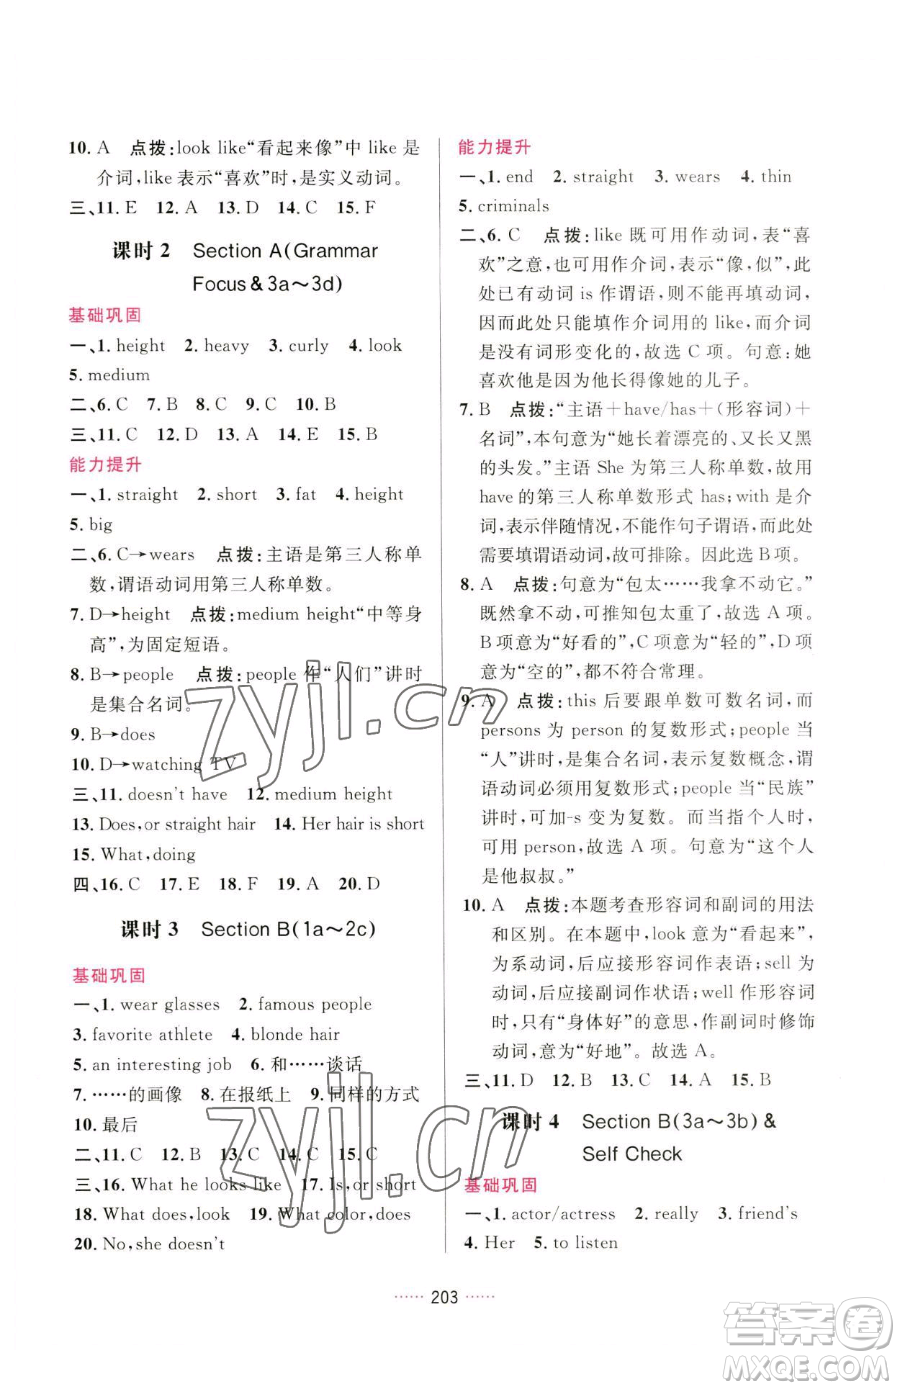 10. A 点拨:look like“看起来像”中 like 是
介词,like 表示“喜欢”时,是实义动词。
三、11. E 12. A 13. D 14. C 15. F
课时 2 Section A(Grammar
Focus & 3a～3d)
基础巩固
一、1. height 2. heavy 3. curly 4. look
5. medium
二、6. C 7. B 8. C 9. C 10. B
三、11. C 12. D 13. C 14. C 15. B
能力提升
一、1. straight 2. short 3. fat 4. height
5. big
二、6. C→wears 点拨:主语是第三人称单
数,谓语动词用第三人称单数。
7. D→height 点拨:medium height“中等身
高”,为固定短语。
8. B→people 点拨:people 作“人们”讲时
是集合名词。
9. B→does
10. D→watching TV
三、11. doesn't have 12. medium height
13. Does,or straight hair 14. Her hair is short
15. What,doing
四、16. C 17. E 18. F 19. A 20. D
课时 3 Section B(1a～2c)
基础巩固
一、1. wear glasses 2. famous people
3. favorite athlete 4. blonde hair
5. an interesting job 6. 和……谈话
7. ……的画像 8. 在报纸上 9. 同样的方式
10. 最后
二、11. C 12. D 13. C 14. C 15. C
三、16. What he looks like 17. Is,or short
18. What does,look 19. What color,does
20. No,she doesn't
能力提升
一、1. end 2. straight 3. wears 4. thin
5. criminals
二、6. C 点拨:like 既可用作动词,表“喜
欢”之意,也可用作介词,表示“像,似”,此
处已有动词 is 作谓语,则不能再填动词,
因而此处只能填作介词用的 like,而介词
是没有词形变化的,故选 C 项。句意:她
喜欢他是因为他长得像她的儿子。
7. B 点拨:“主语＋have/has＋(形容词)＋
名词”,本句意为“她长着漂亮的、又长又黑
的头发。”主语 She 为第三人称单数,故用
have 的第三人称单数形式 has;with 是介
词,表示伴随情况,不能作句子谓语,而此
处需填谓语动词,故可排除。因此选 B 项。
8. A 点拨:句意为“包太……我拿不动它。”
既然拿不动,可推知包太重了,故选 A 项。
B 项意为“好看的”,C 项意为“轻的”,D 项
意为“空的”,都不符合常理。
9. A 点拨:this 后要跟单数可数名词,而
persons 为 person 的复数形式;people 当
“人”讲时,是集合名词,表示复数概念,谓
语动词必须用复数形式;people 当“民族”
讲时,可加-s 变为复数。而当指个人时,
可用 person,故选 A 项。句意为“这个人
是他叔叔。”
10. A 点拨:本题考查形容词和副词的用法
和区别。在本题中,look 意为“看起来”,
为系动词,后应接形容词作表语;sell 为
动词,后应接副词作状语;well 作形容词
时,只有“身体好”的意思,作副词时修饰
动词,意为“好地”。故选 A。
三、11. D 12. B 13. C 14. A 15. B
课时 4 Section B(3a～3b) &
Self Check
基础巩固
一、1. actor/actress 2. really 3. friend's
4. Her 5. to listen
…… 203 ……
zyjl.cn
zyjl.cn
答案圈
MXQE.COM